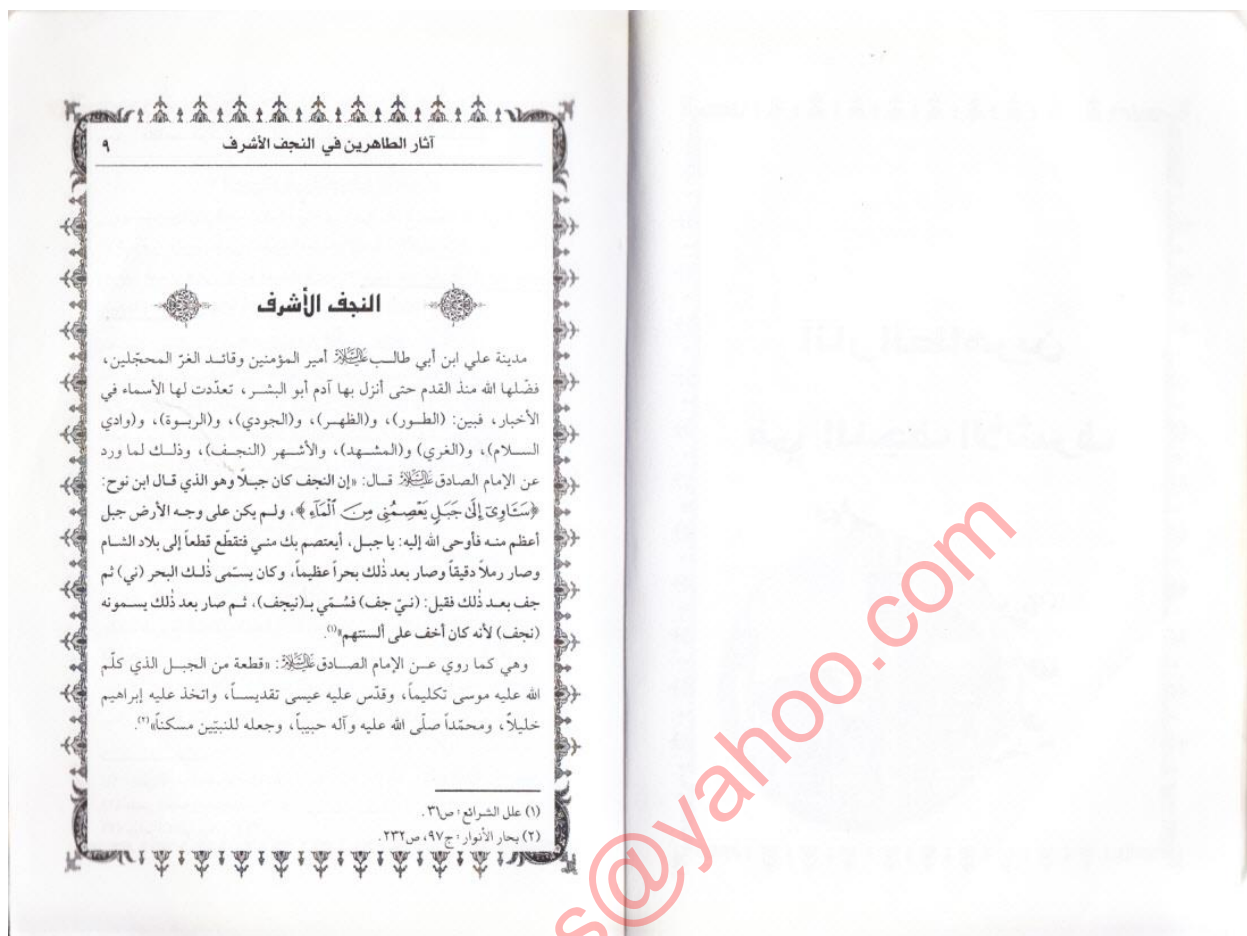 آثار الطاهرين في النجف الأشرف ٩
النجف الأشرف
مدينة علي ابن أبي طالب عليه السلام أمير المؤمنين وقائد الغرّ المحجّلين،
فضّلها الله منذ القدم حتى أنزل بها آدم أبو البشر، تعدّدت لها الأسماء في
الأخبار، فبين: (الطور)، و(الظهر)، و(الجودي)، و(الربوة)، و(وادي
السلام)، و(الغري) و(المشهد)، والأشهر (النجف)، وذلك لما ورد
عن الإمام الصادق عليه السلام قال: «إن النجف كان جبلاً وهو الذي قال ابن نوح:
﴿سَـَٔاوِىٓ إِلَىٰ جَبَلٍ يَعْصِمُنِى مِنَ ٱلْمَآءِ﴾، ولم يكن على وجه الأرض جبل
أعظم منه فأوحى الله إليه: يا جبل، أيعتصم بك مني فتقطّع قطعاً إلى بلاد الشام
وصار رملاً دقيقاً وصار بعد ذٰلك بحراً عظيماً، وكان يسمّى ذٰلك البحر (ني) ثم
جف بعد ذٰلك فقيل: (نيّ جف) فسُمّي بـ(نيجف)، ثم صار بعد ذٰلك يسمونه
(نجف) لأنه كان أخف على ألسنتهم»(١).
وهي كما روي عن الإمام الصادق عليه السلام: «قطعة من الجبل الذي كلّم
الله عليه موسى تكليماً، وقدّس عليه عيسى تقديساً، واتخذ عليه إبراهيم
خليلاً، ومحمّداً صلّى الله عليه وآله حبيباً، وجعله للنبيّين مسكناً»(٢).
(١) علل الشرائع: ص٣١.
(٢) بحار الأنوار: ج٩٧، ص٢٣٢.
s@yahoo.com